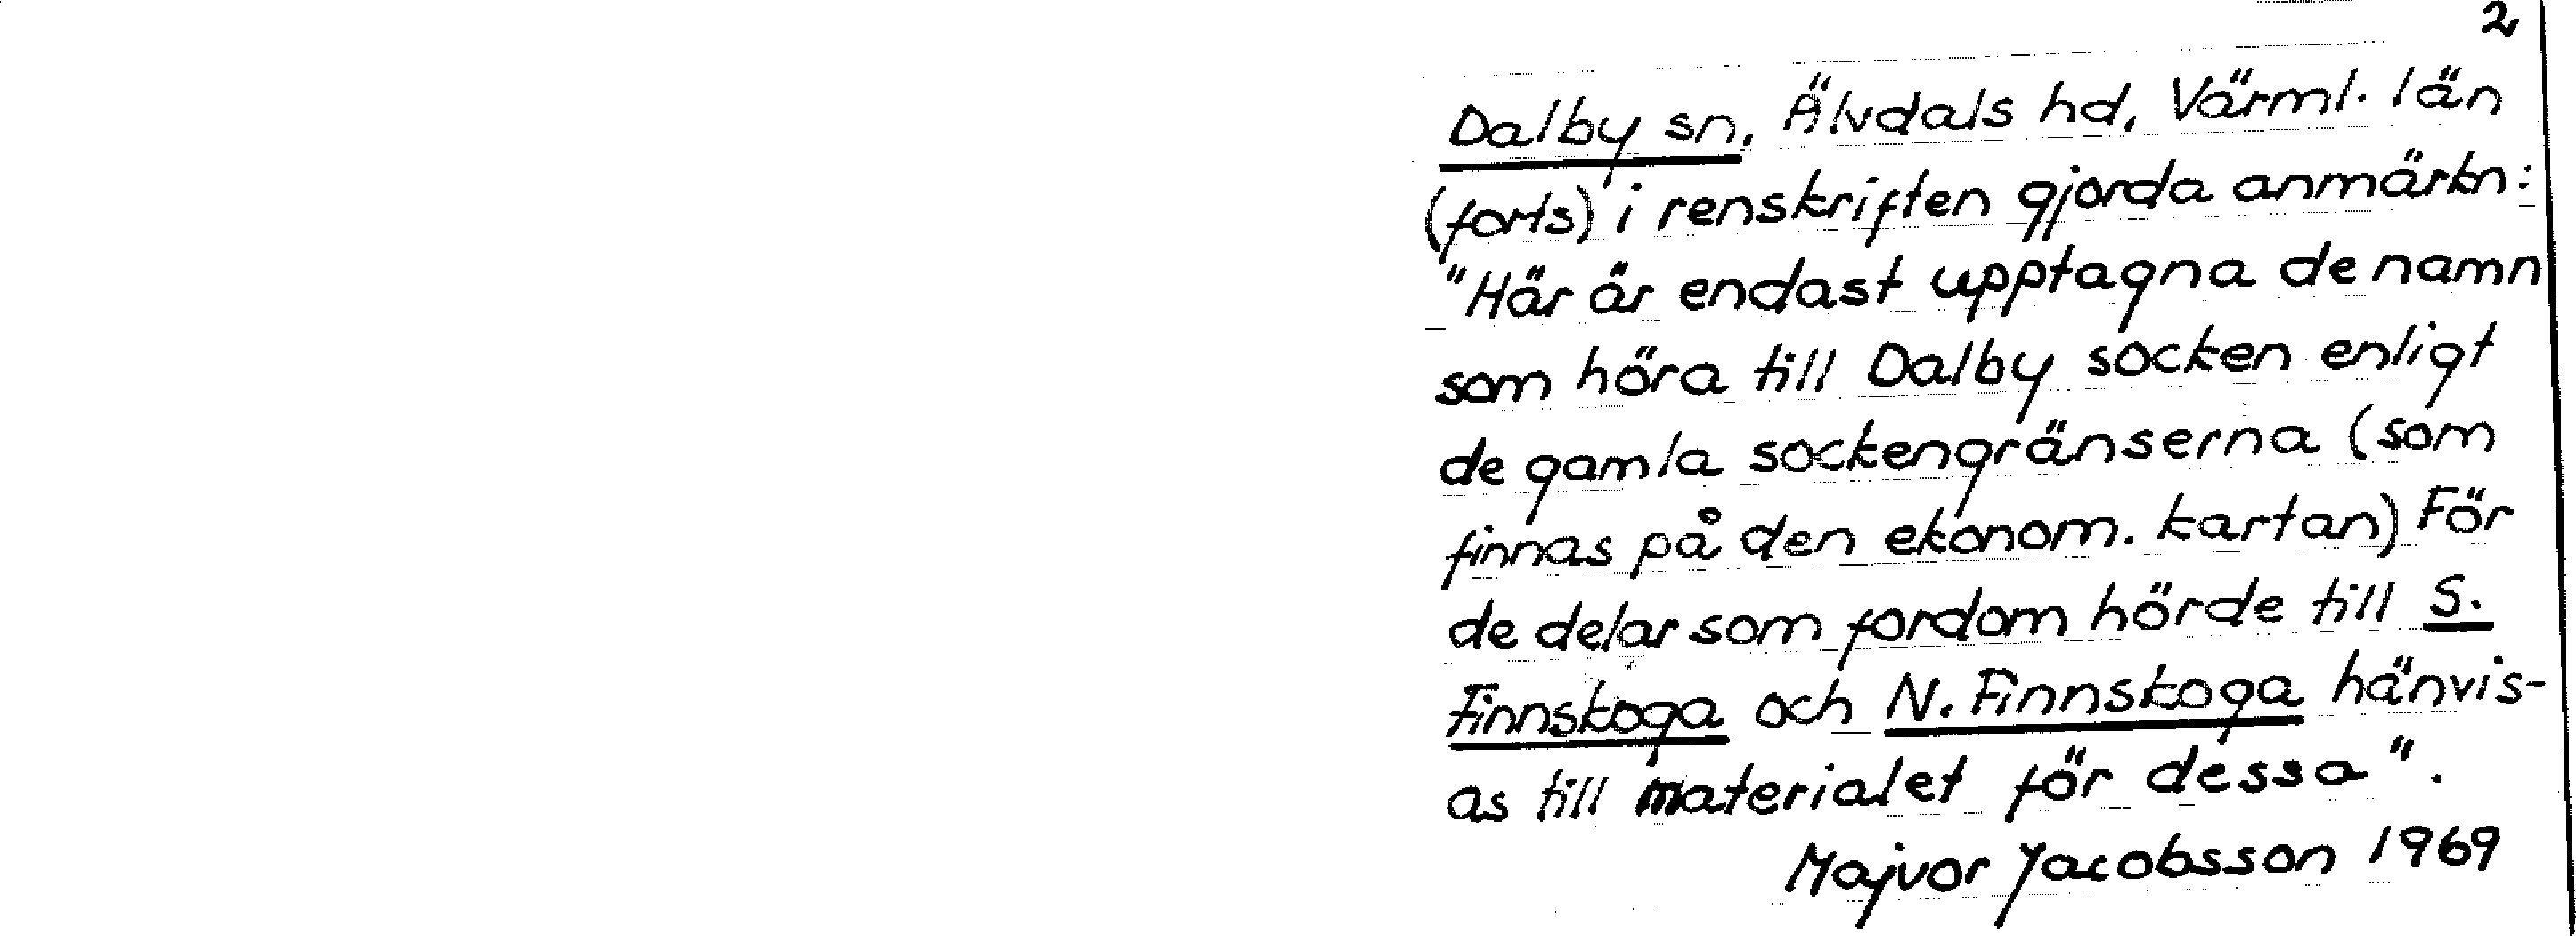 2
Dalby sn, Älvdals hd, Värml. län
(forts) i renskriften gjorda anmärkn:
"Här är endast upptagna de namn
som höra till Dalby socken enligt
de gamla sockengränserna (som
finnas på den ekonom. kartan) För
de delar som fordom hörde till S.
Finnskoga och N. Finnskoga hänvis-
as till materialet för dessa".
Majvor Jacobsson 1969